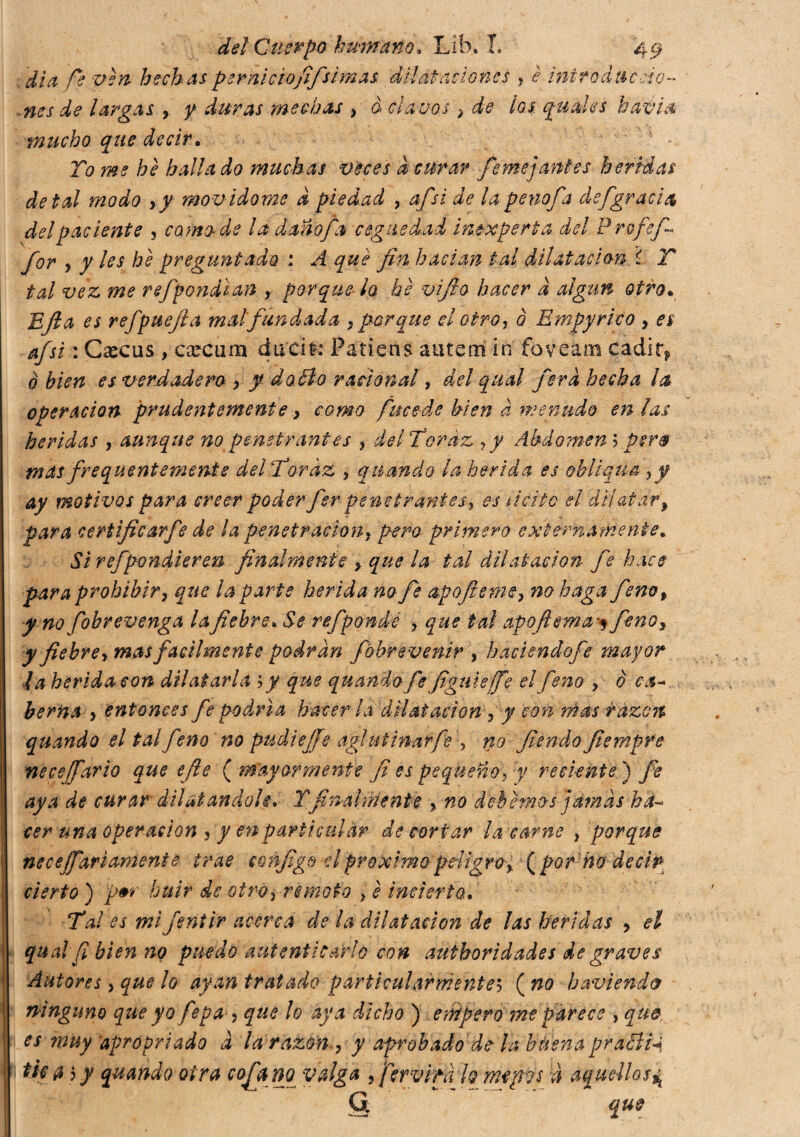 del Cuerpo humano. Lib. I. 49
dia ſe vèn hechas pernicioſiſsimas dilataciones , è introduccio-
nes de largas , y duras mechas , ò clavos , de los quales havia
mucho que decir.
Yo me hè hallado muchas veces à curar ſemejantes heridas
de tal modo , y movidome à piedad , aſsi de la penoſa deſgracia
del paciente , como de la dañoſa ceguedad inexperta del Profeſ-
ſor , y les hè preguntado : A què fin hacian tal dilatacion ? Y
tal vez me reſpondian , porque lo hè viſto hacer à algun otro.
Eſta es reſpueſta mal fundada , porque el otro, ò Empyrico , es
aſsi : Cæcus , cæcum ducit: Patiens autem in foveam cadit,
ò bien es verdadero , y docto racional , del qual ſerà hecha la
operacion prudentemente , como ſucede bien à menudo en las
heridas , aunque no penetrantes , del Toràz , y Abdomen ; pero
mas frequentemente del Toràz , quando la herida es obliqua , y
ay motivos para creer poder ſer penetrantes, es licito el dilatar,
para certificarſe de la penetracion, pero primero externamente.
Si reſpondieren finalmente , que la tal dilatacion ſe hace
para prohibir, que la parte herida no ſe apoſteme, no haga ſeno,
y no ſobrevenga la fiebre. Se reſponde , que tal apoſtema, ſeno,
y fiebre, mas facilmente podràn ſobrevenir , haciendoſe mayor
la herida con dilatarla ; y que quando ſe ſiguieſſe el ſeno , ò ca-
berna , entonces ſe podria hacer la dilatacion , y con mas razon
quando el tal ſeno no pudieſſe aglutinarſe , no ſiendo ſiempre
neceſſario que eſte ( mayormente ſi es pequeño, y reciente ) ſe
aya de curar dilatandole. Y finalmente , no debemos jamàs ha-
cer una operacion , y en particular de cortar la carne , porque
neceſſariamente trae conſigo el proximo peligro, ( por no decir
cierto ) por huir de otro, remoto , è incierto.
Tal es mi ſentir acerca de la dilatacion de las heridas , el
qual ſi bien no puedo autenticarlo con authoridades de graves
Autores , que lo ayan tratado particularmente; ( no haviendo
ninguno que yo ſepa , que lo aya dicho ) empero me parece , que
es muy apropriado à la razon , y aprobado de la buena practi-
tica ; y quando otra coſa no valga , ſervirà lo menos à aquellos,
G que